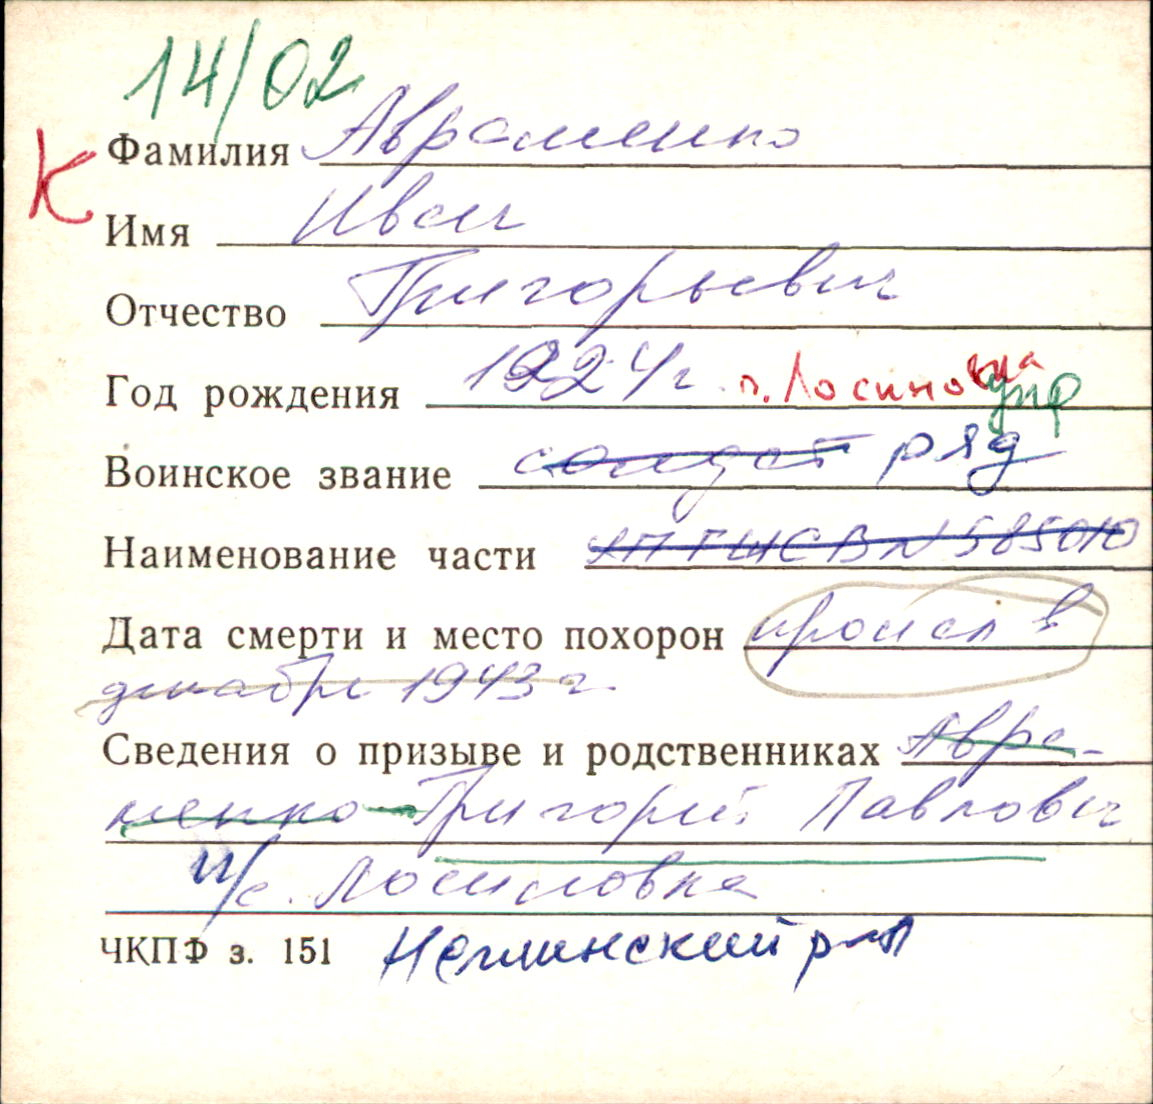 14/02
К
Фамилия Авраменко
Имя Иван
Отчество Григорьевич
Год рождения 1924 г. п. Лосиновка
упр
Воинское звание солдат ряд
Наименование части N 58501
Дата смерти и место похорон проп сп в
декабре 1943 г.
Сведения о призыве и родственниках Авра-
менко Григорий Павлович
с. Лосиновка
ЧКПФ з. 151 р-н